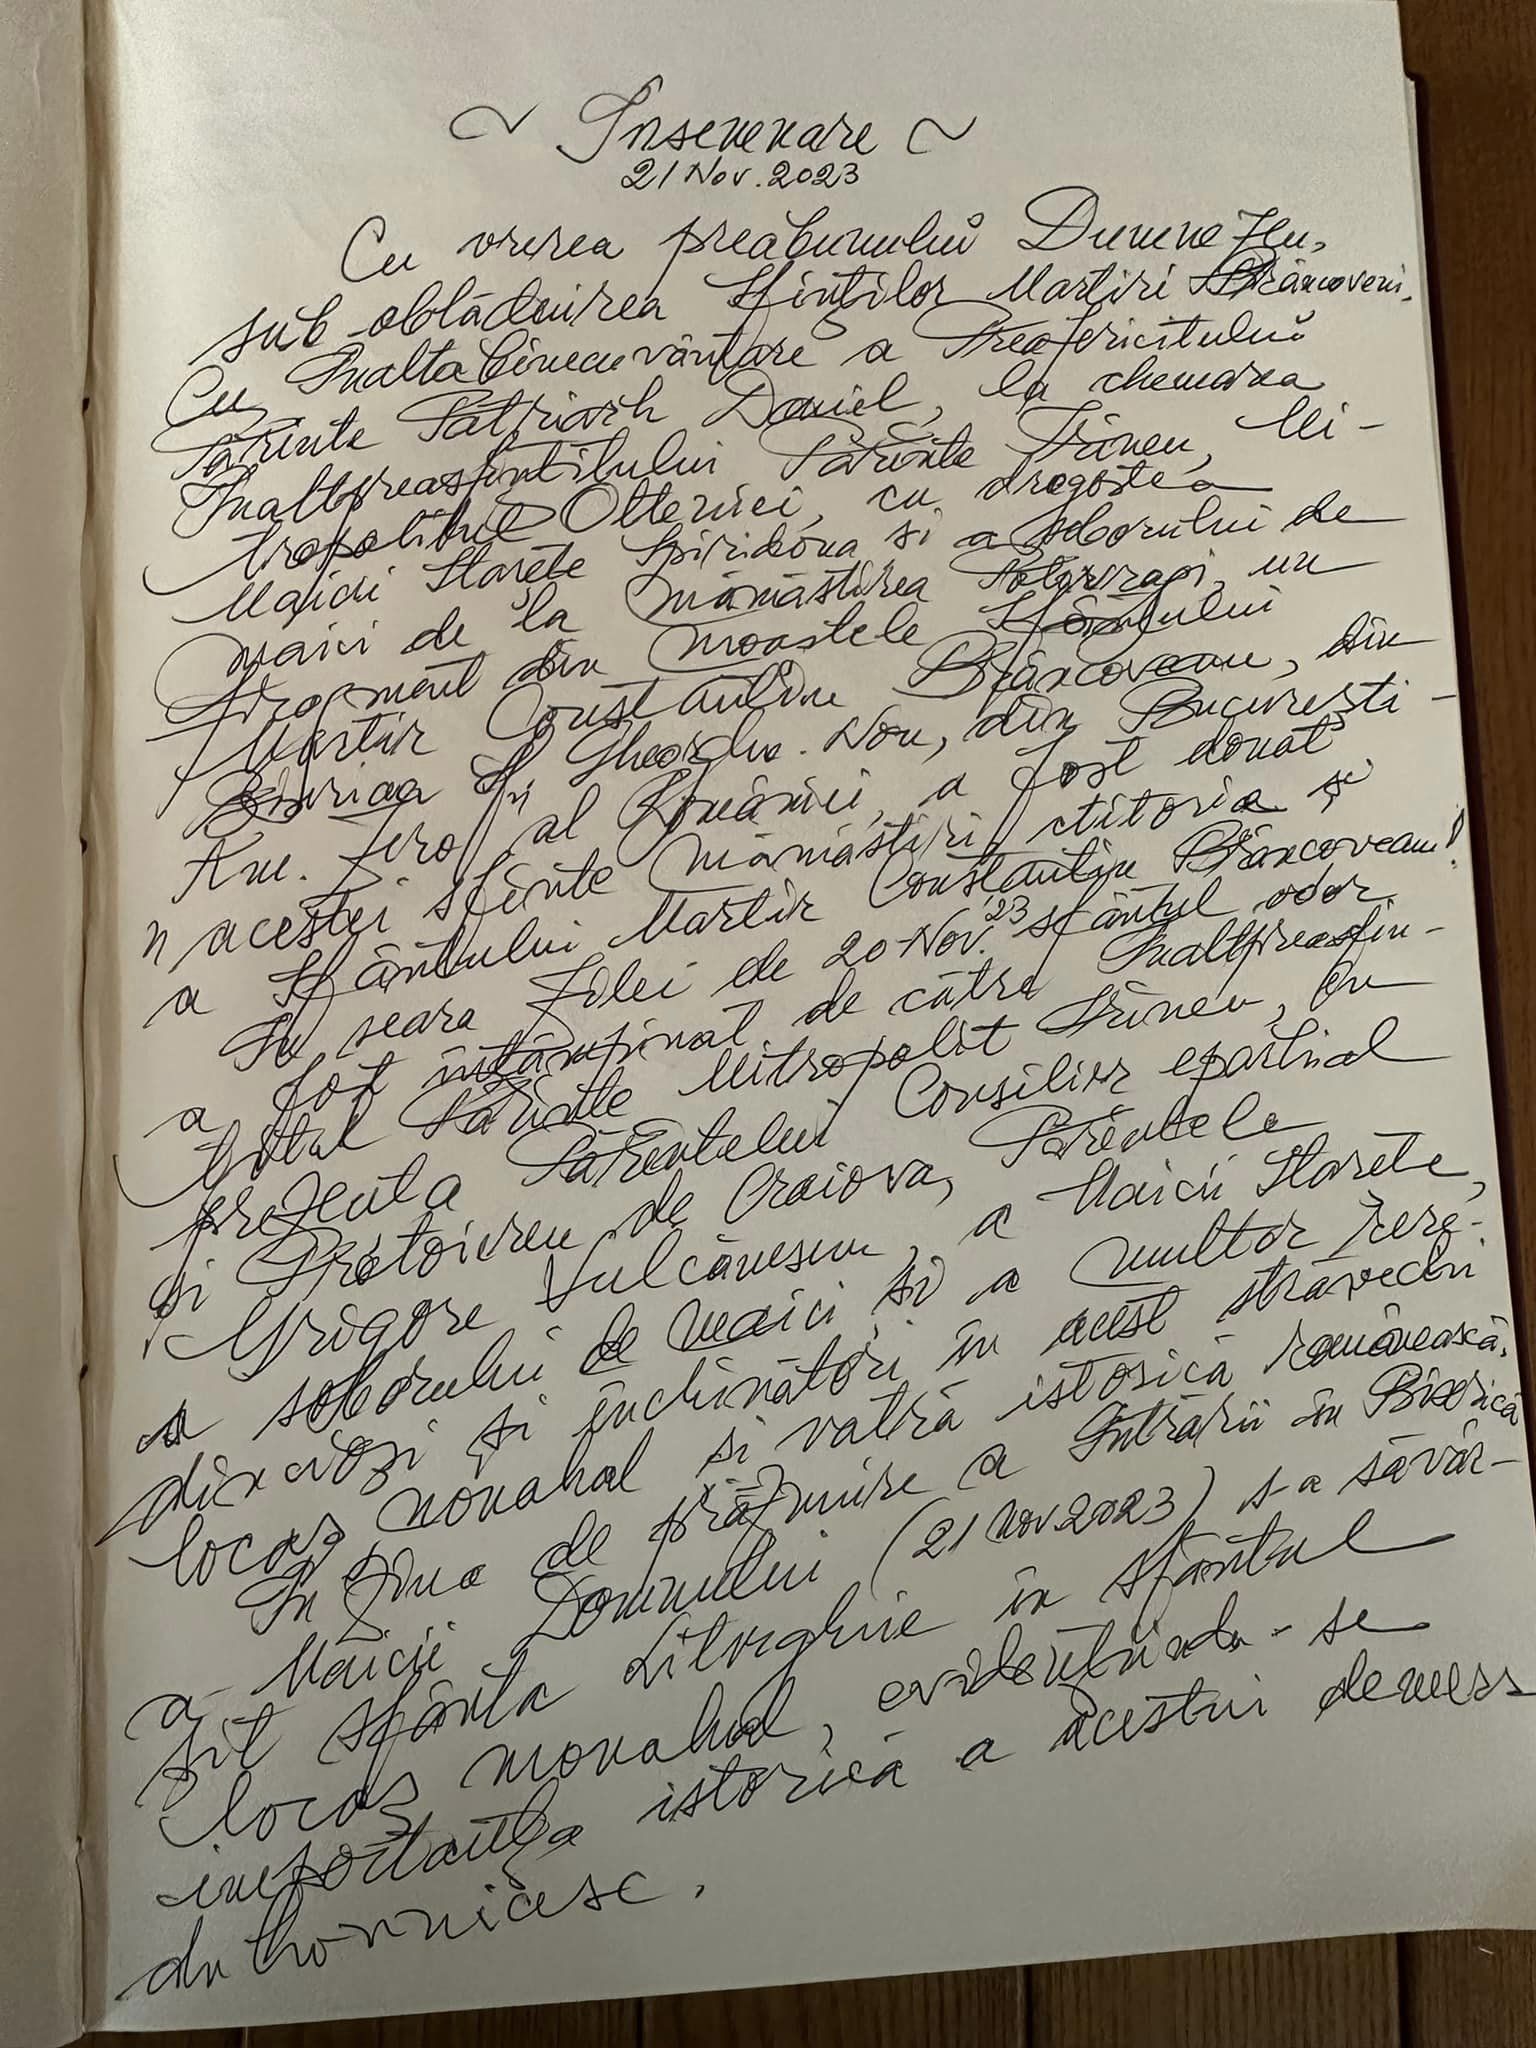 ~ Însemnare ~
21 Nov. 2023
Cu vrerea preabunului Dumnezeu,
sub oblăduirea Sfinților Martiri Brâncoveni,
Cu Înalta binecuvântare a Preafericitului
Părinte Patriarh Daniel, la chemarea
Înaltpreasfințitului Părinte Irineu, Mi-
tropolitul Olteniei, cu dragostea
Maicii Starețe Spiridona și a soborului de
maici de la Mănăstirea, un
fragment din moastele Sfântului
Martir Constantin Brâncoveanu, din
Biserica Sf. Gheorghe Nou, din București -
Km. zero al României, a fost donat
acestei sfinte mănăstiri, ctitorie
a Sfântului Martir Constantin Brâncoveanu!
În seara zilei de 20 Nov. 23 sfântul odor
a fost întâmpinat de către Înaltpreasfin-
țitul Părinte Mitropolit Irineu, în
prezența Părintelui Consilier eparhial
și Protoiereu de Craiova, Părintele
Grigore Vulcănescu, a Maicii Starețe,
a soborului de maici și a multor
și închinători în acest străvechi
locaș monahal și vatră istorică românească.
În ziua de prăznuire a Intrării în Biserică
a Maicii Domnului (21 Nov. 2023) s-a săvâr-
șit sfânta Liturghie în sfântul
locaș monahal, evidențiindu-se
importanța istorică a acestui demers
duhovnicesc.